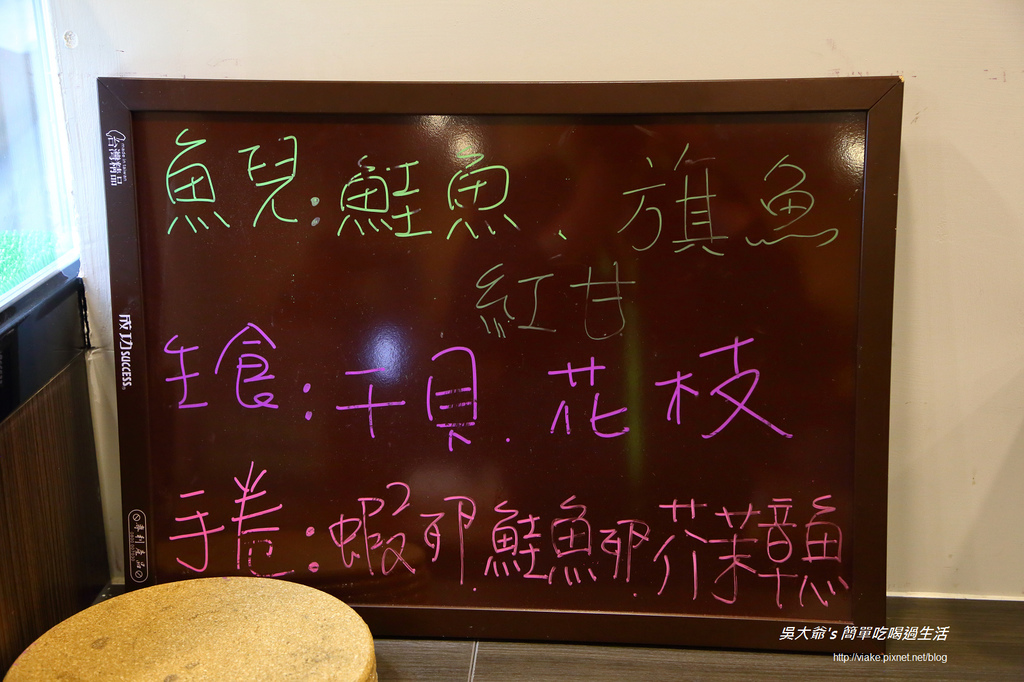 魚兒:鮭魚、旗魚
紅甘
生食:干貝.花枝
手卷:蝦2卵.鮭魚卵.芥茉章魚
台灣精品
成功 SUCCESS.
專利產品
吳大爺's 簡單吃喝過生活
http://viake.pixnet.net/blog